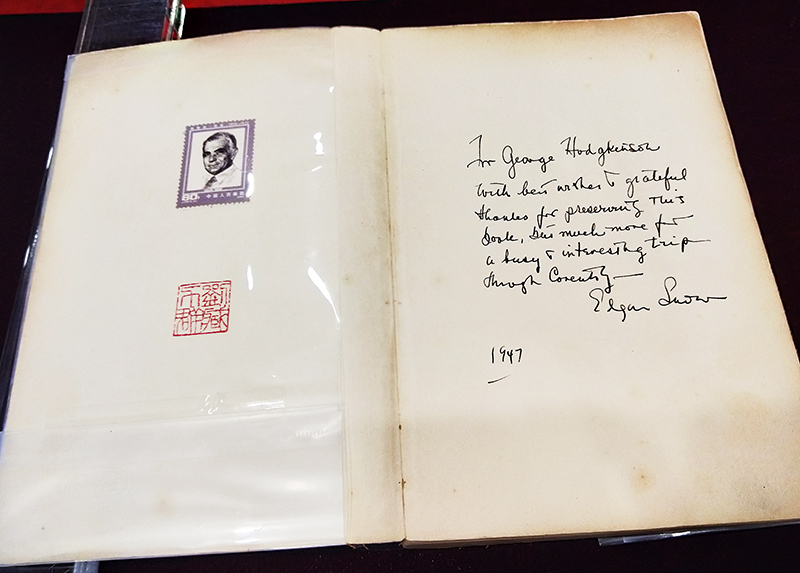 80分 中国人民邮政
For George Hodgkinson
with best wishes & grateful
thanks for preserving this
book, but much more for
a busy & interesting trip
through Coventry—
Edgar Snow
1947